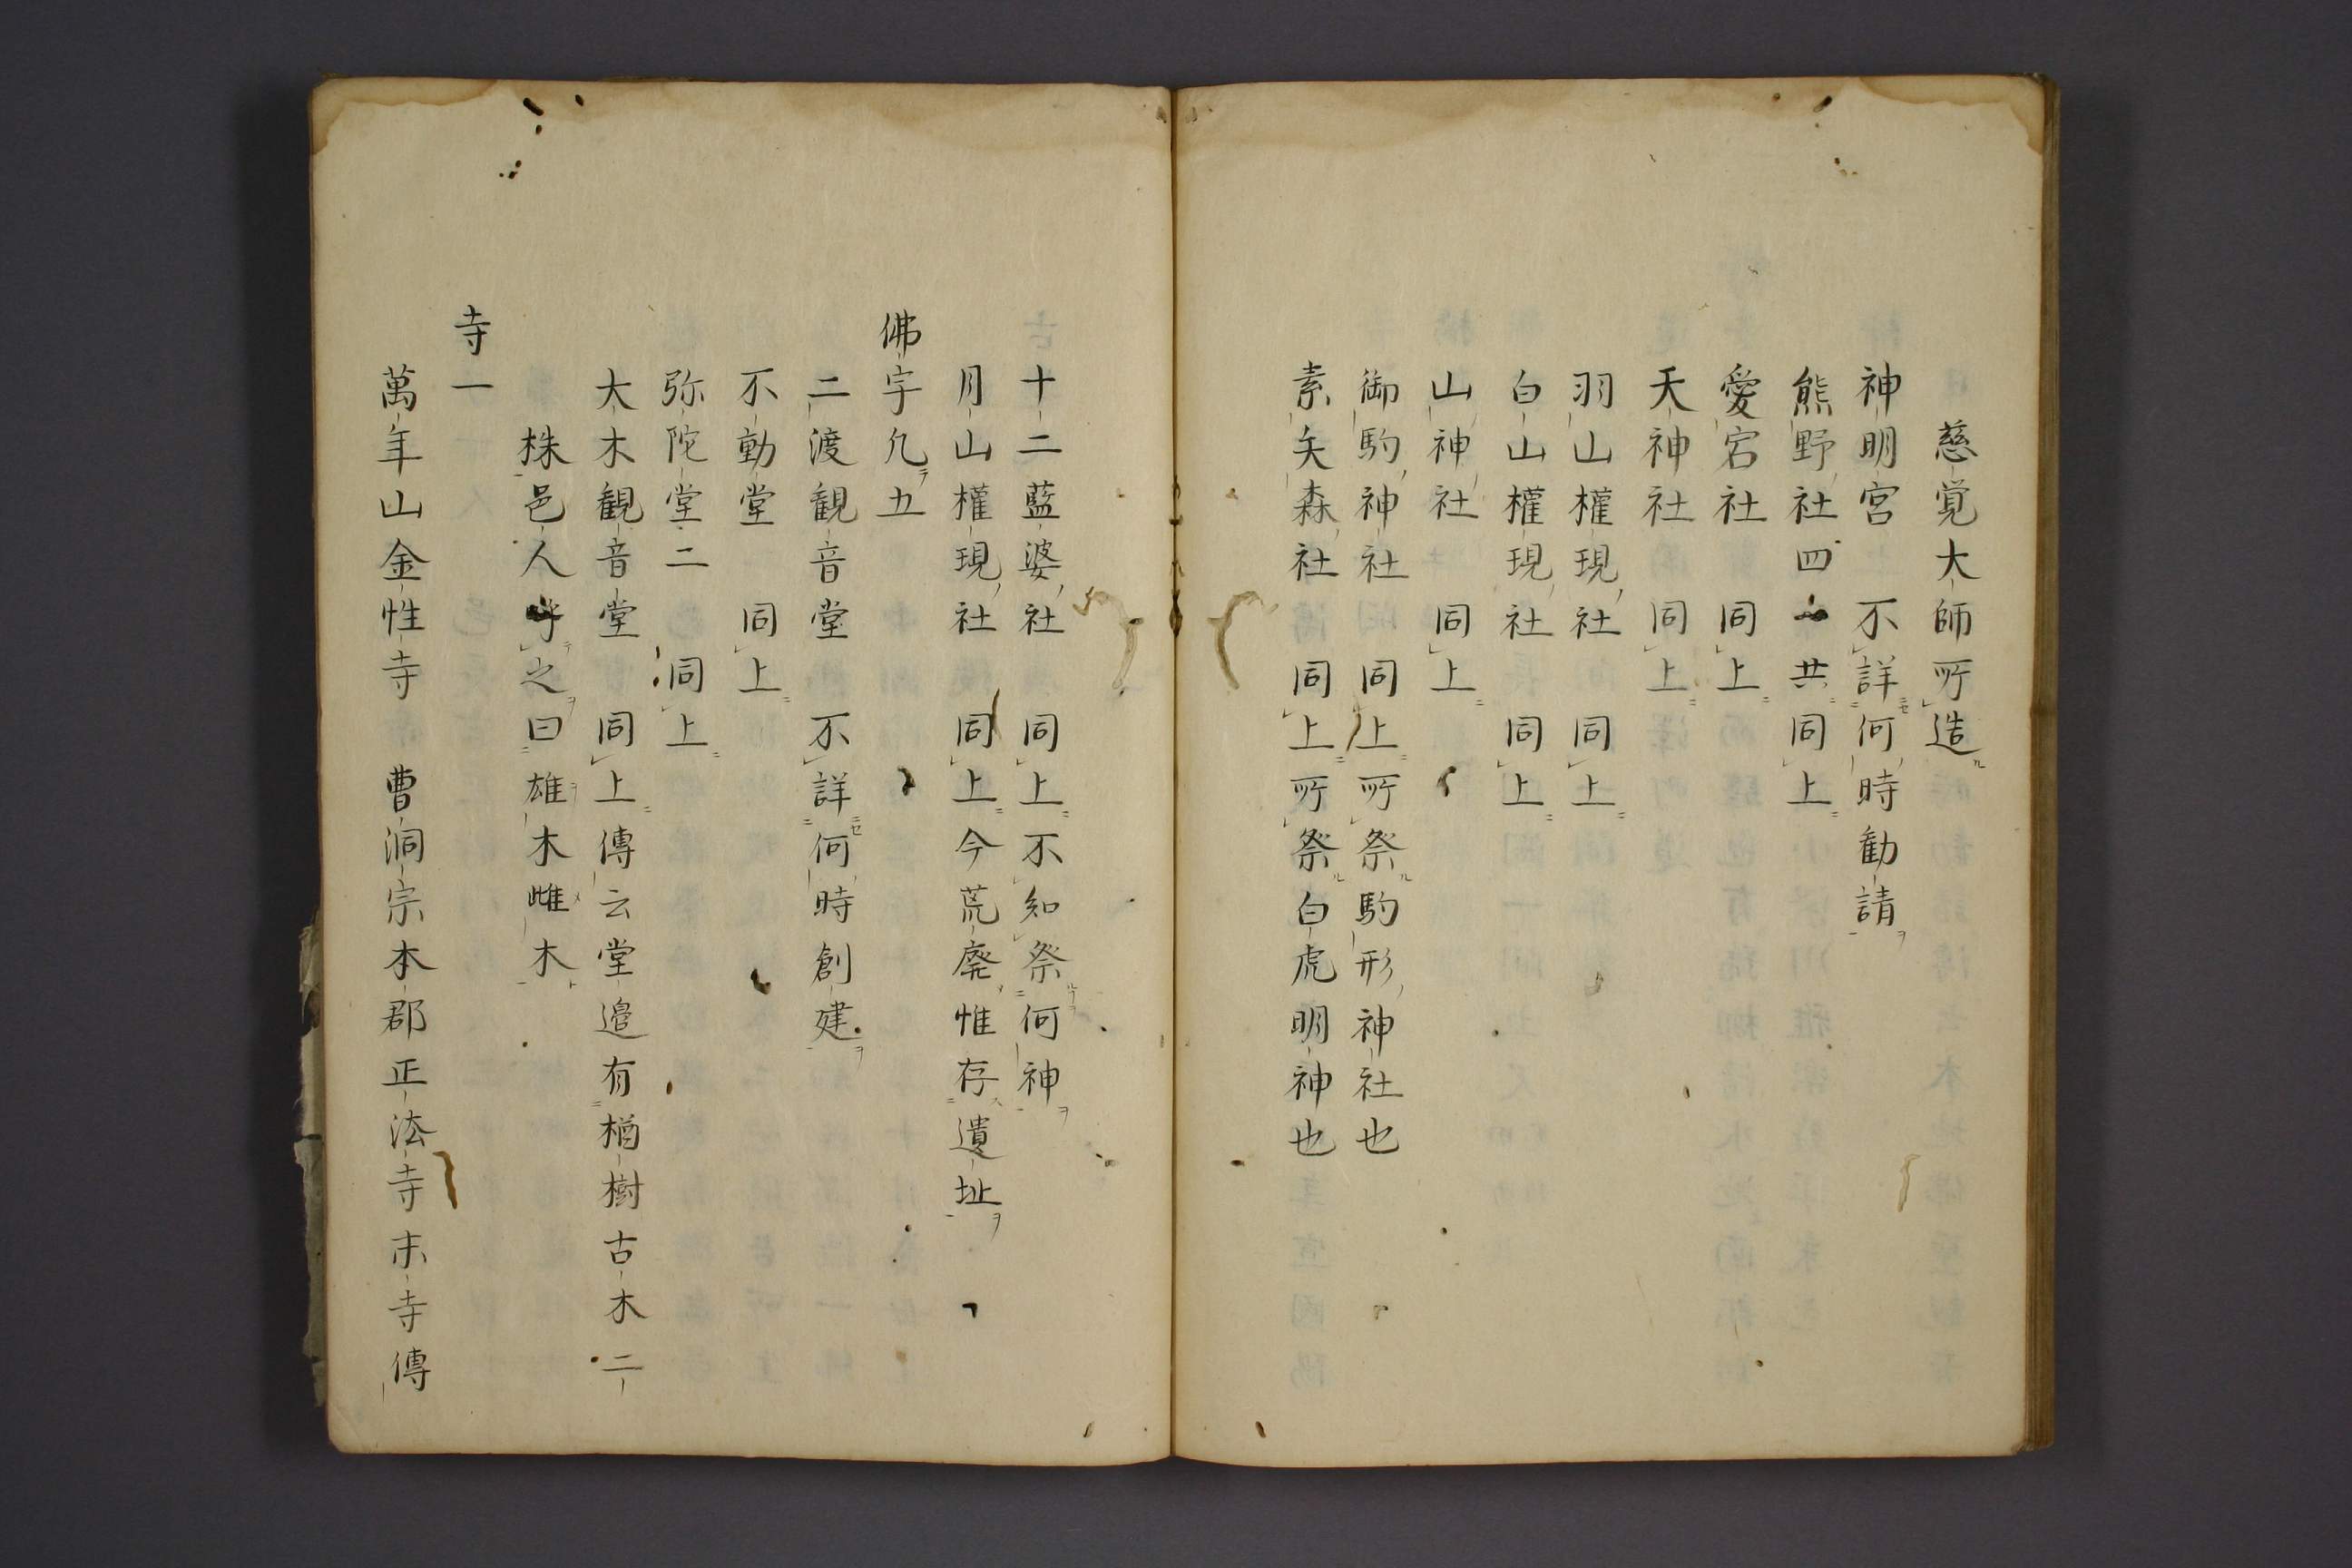 慈覚大師所造
神明宮 不詳何時勧請
熊野社四 共同上
愛宕社 同上
天神社 同上
羽山權現社 同上
白山權現社 同上
山神社 同上
御駒神社 同上所祭駒形神社也
素矢森社 同上所祭白虎明神也
十二藍婆社 同上不知祭何神
月山權現社 同上今荒廃惟存遺址
佛宇凡五
二渡観音堂 不詳何時創建
不動堂 同上
弥陀堂二 同上
大木観音堂 同上傳云堂邉有楢樹古木二
株邑人呼之曰雄木雌木
寺一
萬年山金性寺 曹洞宗本郡正法寺末寺傳